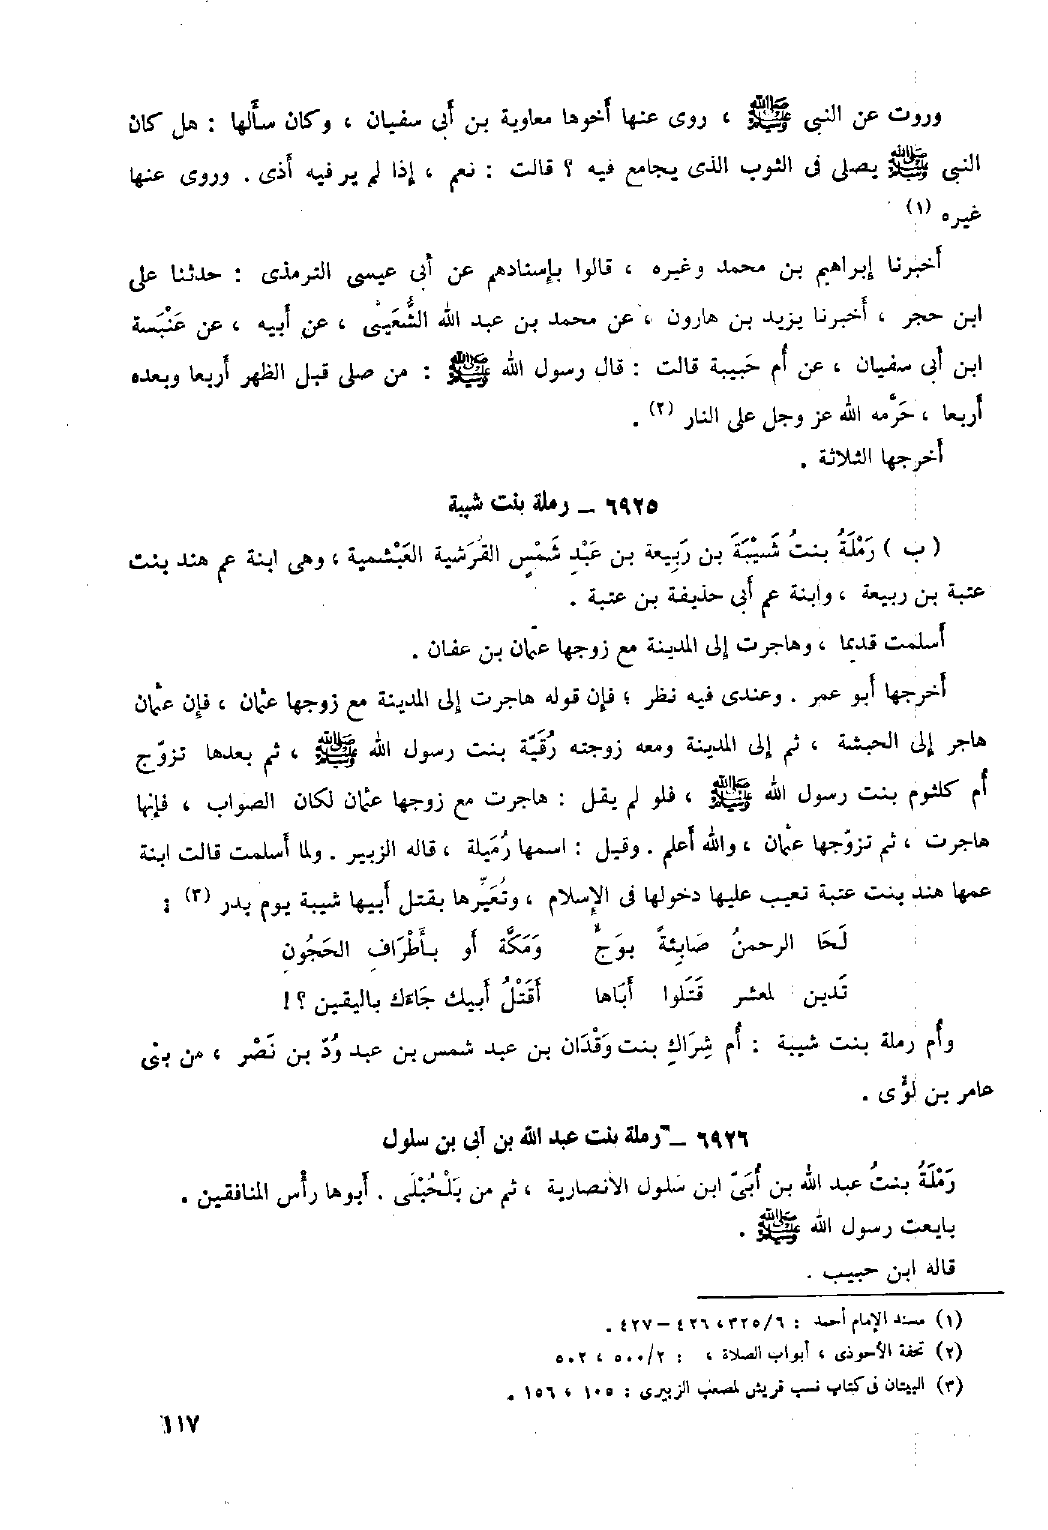 وروت عن النبى ﷺ ، روى عنها أخوها معاوية بن أبى سفيان ، وكان سألها : هل كان
النبى ﷺ يصلى فى الثوب الذى يجامع فيه ؟ قالت : نعم ، إذا لم ير فيه أذى . وروى عنها
غيره (١)
أخبرنا إبراهيم بن محمد وغيره ، قالوا بإسنادهم عن أبى عيسى الترمذى : حدثنا على
ابن حجر ، أخبرنا يزيد بن هارون ، عن محمد بن عبد الله الشُّعَيثى ، عن أبيه ، عن عَنْبَسة
ابن أبى سفيان ، عن أُم حَبيبة قالت : قال رسول الله ﷺ : من صلى قبل الظهر أربعا وبعده
أربعا ، حَرَّمه الله عز وجل على النار (٢) .
أخرجها الثلاثة .
٦٩٢٥ ــ رملة بنت شيبة
( ب ) رَمْلَةُ بنتُ شَيْبَةَ بن رَبِيعة بن عَبْدِ شَمْسٍ القُرَشية العَبْشمية ، وهى ابنة عم هند بنت
عتبة بن ربيعة ، وابنة عم أبى حذيفة بن عتبة .
أسلمت قديما ، وهاجرت إلى المدينة مع زوجها عثمان بن عفان .
أخرجها أبو عمر . وعندى فيه نظر ؛ فإن قوله هاجرت إلى المدينة مع زوجها عثمان ، فإن عثمان
هاجر إلى الحبشة ، ثم إلى المدينة ومعه زوجته رُقَيّة بنت رسول الله ﷺ ، ثم بعدها تزوّج
أم كلثوم بنت رسول الله ﷺ ، فلو لم يقل : هاجرت مع زوجها عثمان لكان الصواب ، فإنها
هاجرت ، ثم تزوّجها عثمان ، والله أعلم . وقيل : اسمها رُمَيلة ، قاله الزبير . ولما أسلمت قالت ابنة
عمها هند بنت عتبة تعيب عليها دخولها فى الإسلام ، وتُعَيِّرها بقتل أبيها شيبة يوم بدر (٣) :
لَحَا الرحمنُ صَابِئةً بوَجٍّ وَمَكَّةَ أو بأَطْرَافِ الحَجُونِ
تَدين لمعشر قَتَلوا أبَاها أقَتْلُ أبيك جَاءَك باليقين ؟ !
وأُم رملة بنت شيبة : أُم شِرَاكٍ بنت وَقْدَان بن عبد شمس بن عبد وُدّ بن نَصْر ، من بنى
عامر بن لُؤَى .
٦٩٢٦ ــ رملة بنت عبد الله بن أبى بن سلول
رَمْلَةُ بنتُ عبد الله بن أُبَىّ ابن سَلول الأنصارية ، ثم من بَلْحُبْلَى . أبوها رأْس المنافقين .
بايعت رسول الله ﷺ .
قاله ابن حبيب .
(١) مسند الإمام أحمد : ٦/ ٣٢٥ ، ٤٢٦ – ٤٢٧ .
(٢) تحفة الأحوذى ، أبواب الصلاة ، : ٢/ ٥٠٠ ، ٥٠٢
(٣) البيتان فى كتاب نسب قريش لمصعب الزبيرى : ١٠٥ ، ١٥٦ .
١١٧